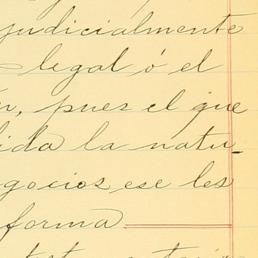 judicialmente
legal ó el
n, pues el que
ida la natu-
gocios ese les
forma